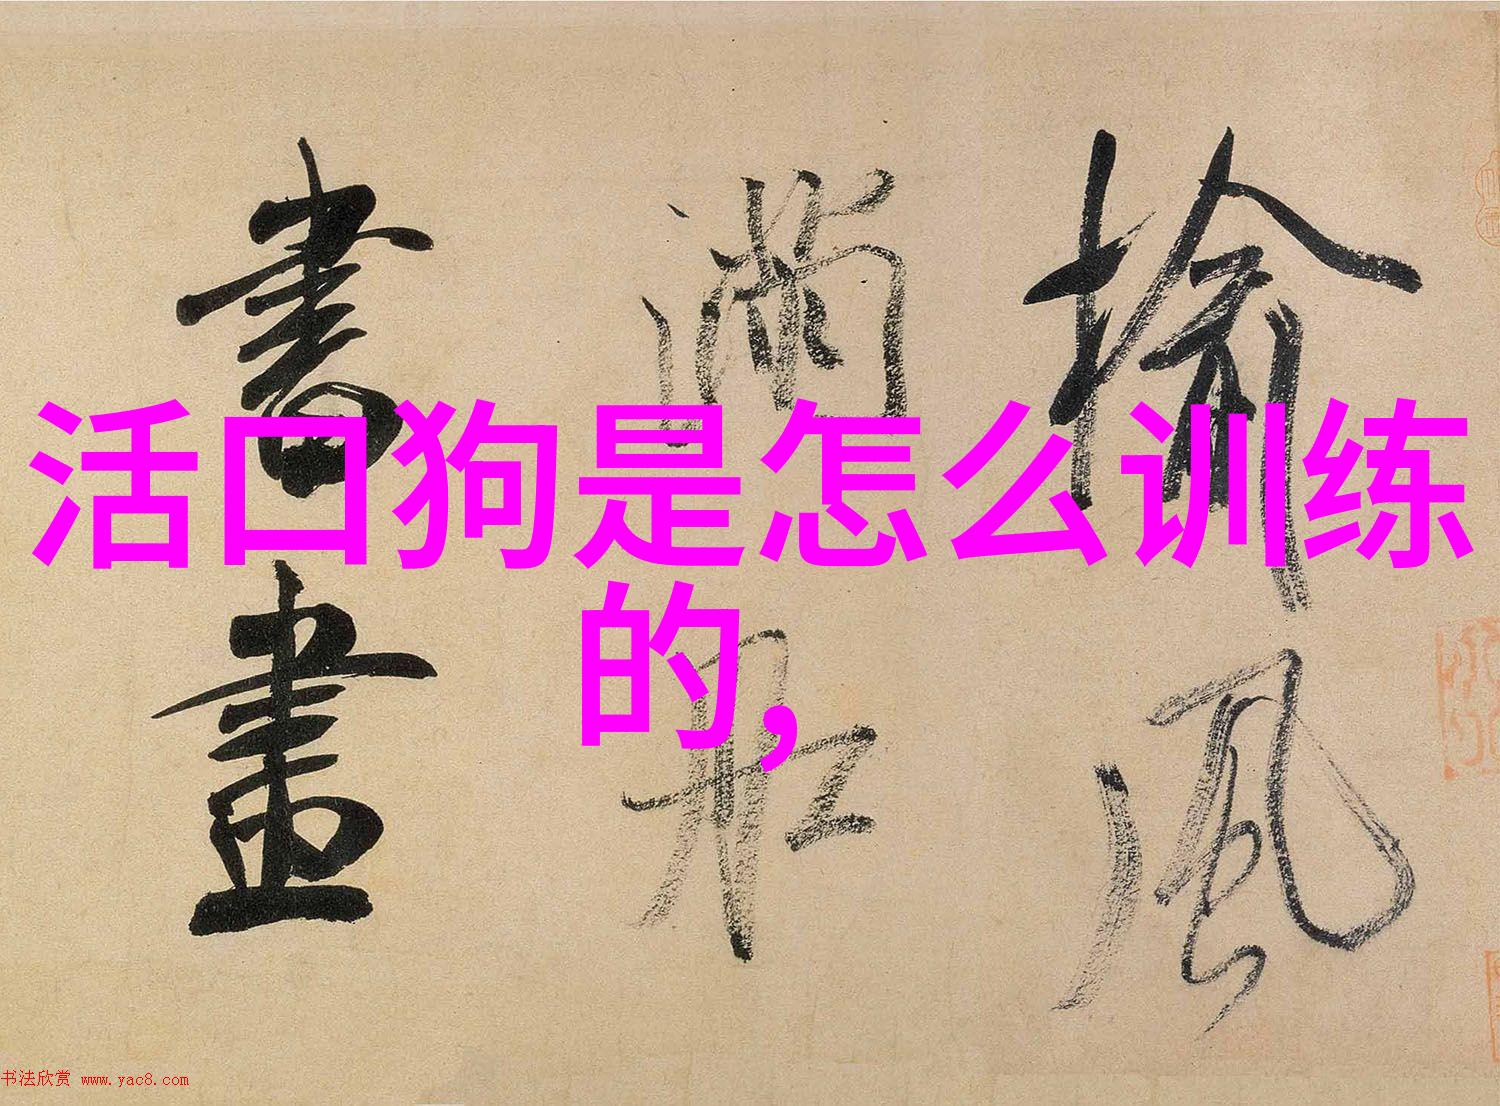 揄風
滿船
書畫
活口狗是怎么训练
的,
书法欣赏 www.yac8.com